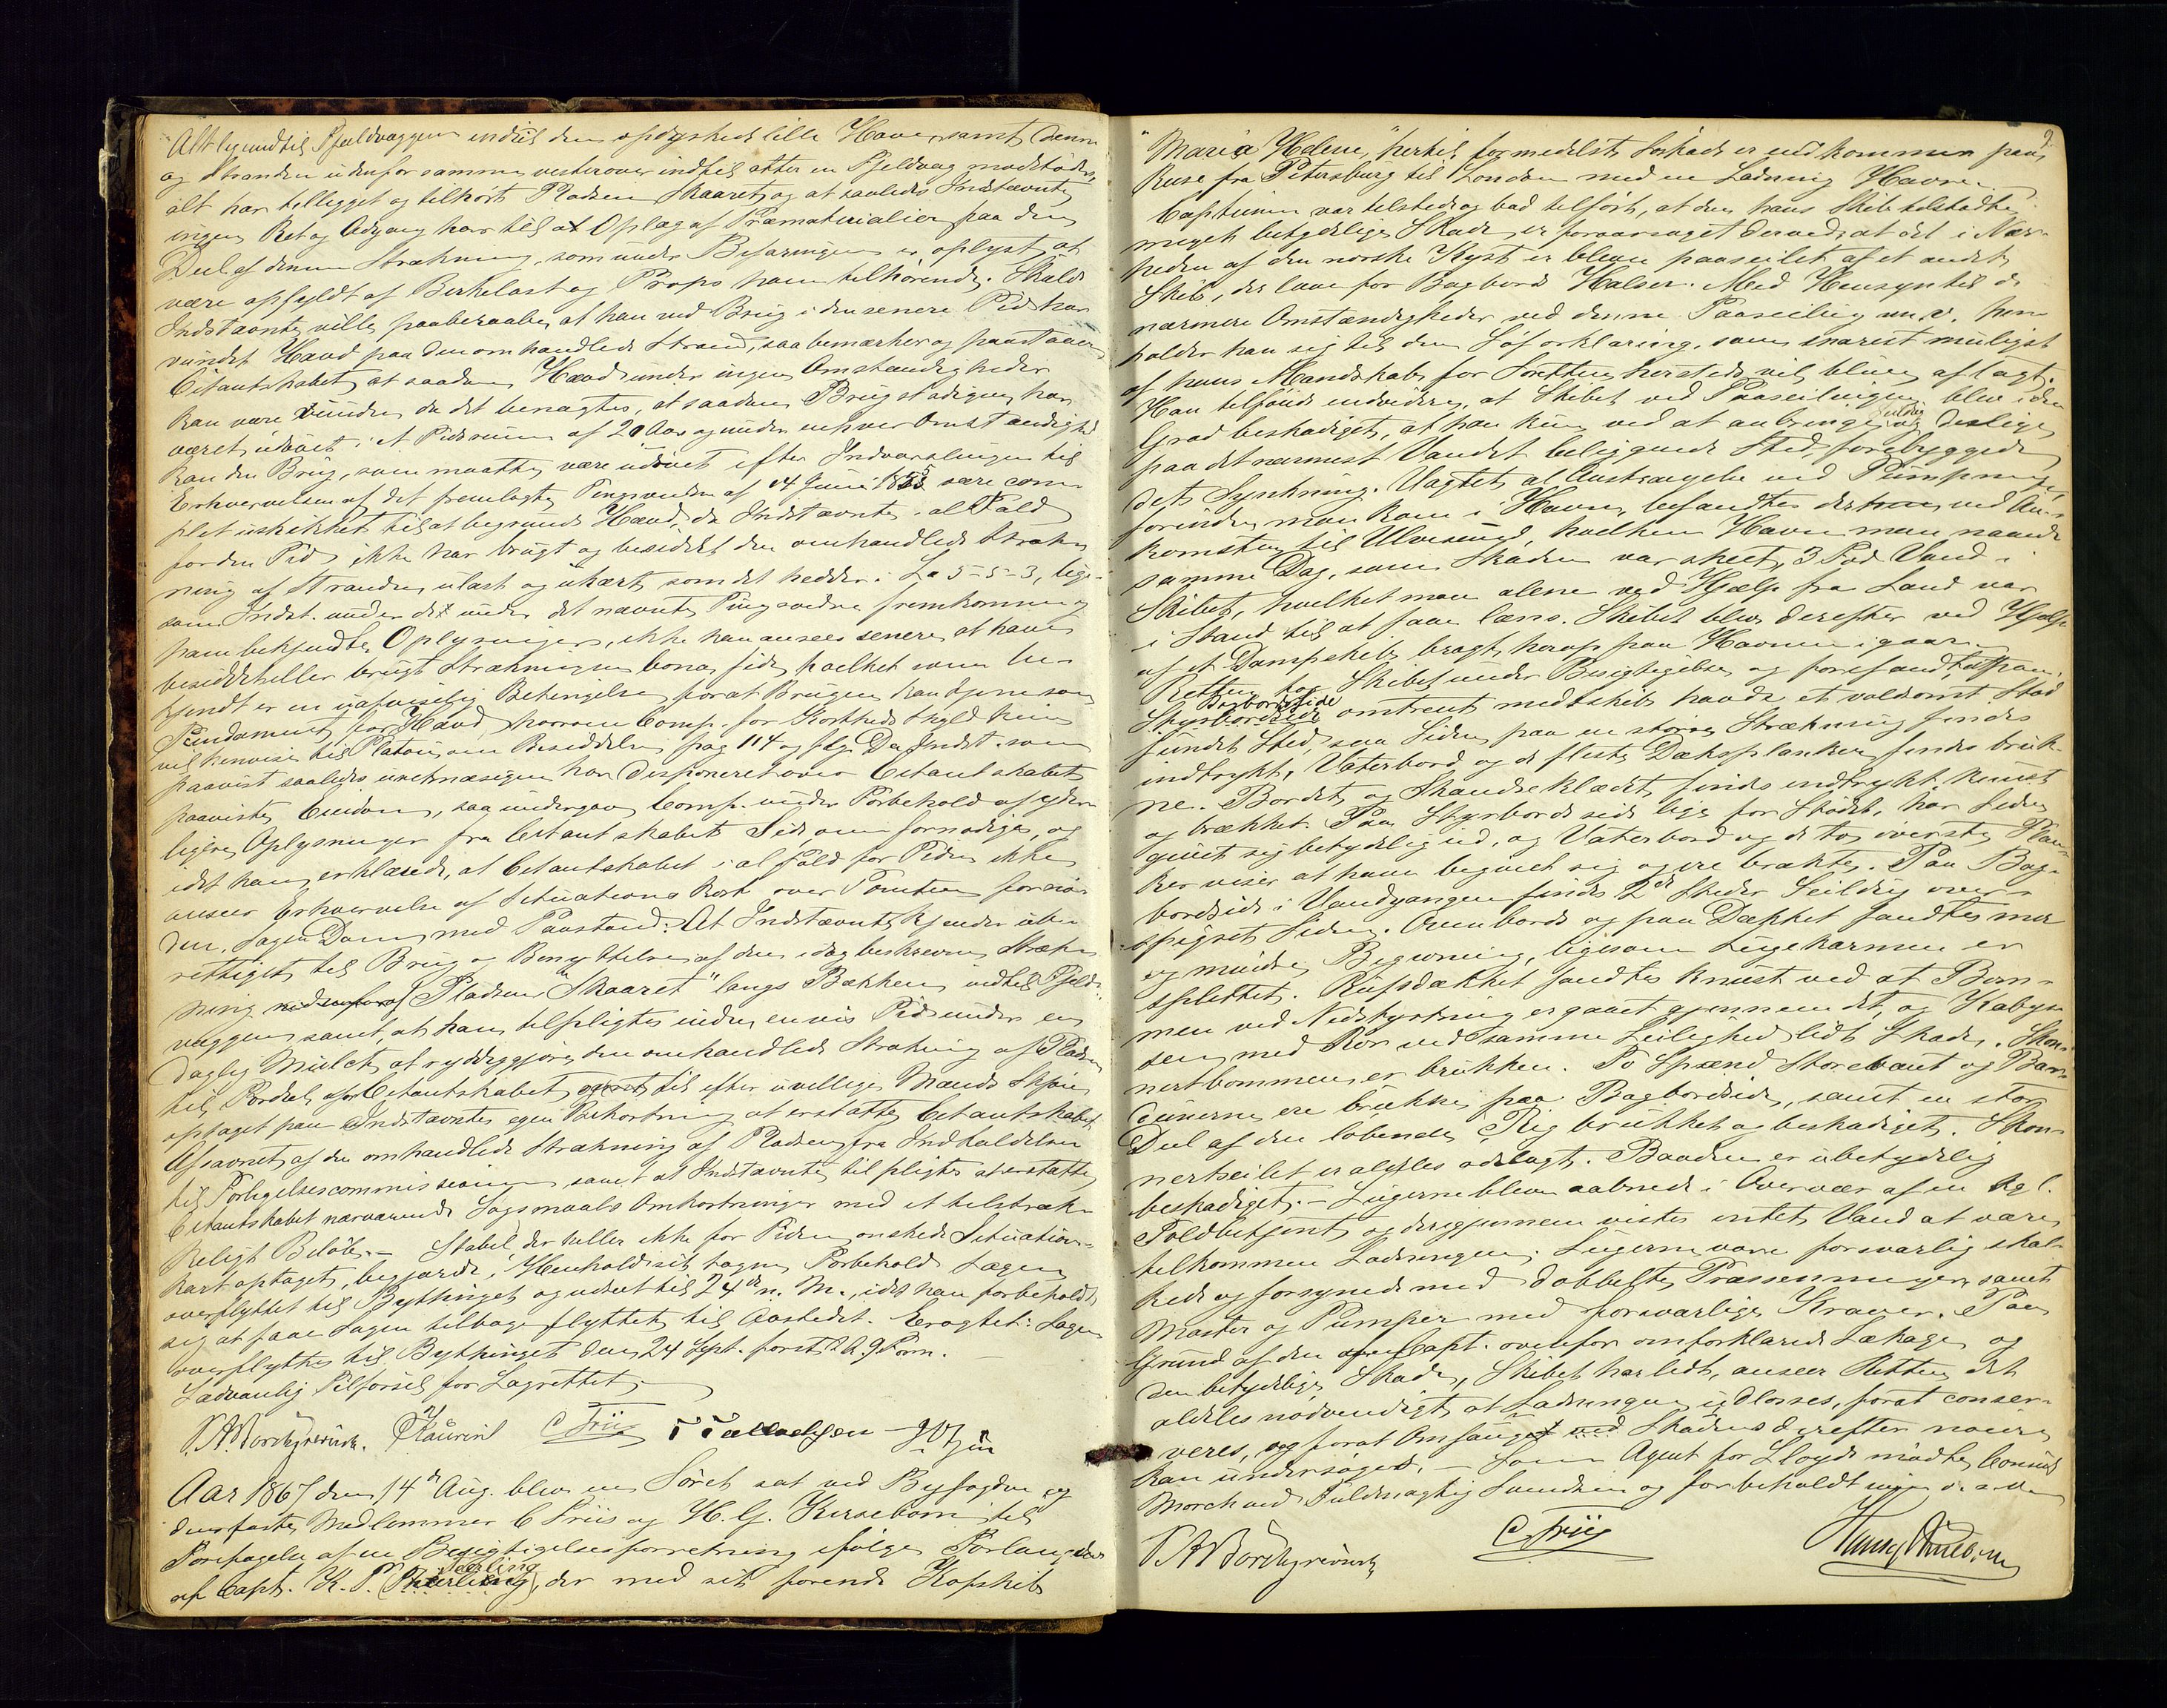 Alt liggende til Fjeldvæggen indtil den opdyrkede lille Have, samt denne
og Stranden udenfor samme vestover indtil atter en Fjeldvæg modstøder,
alt har tilligget og tilhørt Pladsen Skaaret, og at saaledes Indstævnte
ingen Ret og Adgang har til at Oplag af Træmaterialier paa den
Deel af denne Strækning, som under Befaringen er oplyst at
være opfyldt af Birkelast og Props ham tilhørende. Skulde
Indstævnte ville paaberaabe, at han ved Brug i den senere Tid har
vundet Hævd paa den omhandlede Strand, saa bemærker og paastaaer
Citantskabet, at saadan Hævd under ingen Omstændigheder
kan være vunden, da det benægtes, at saadan Brug stadigen har
været udøvet i et Tidsrum af 20 Aar og under enhver Omstændighed
kan den Brug, som maatte være udøvet efter Indvarslingen til
Erhvervelsen af det fremlagte Tingsvidne af 14 Juni 1853 være com-
plet uskikket til at begrunde Hævd, da Indstævnte i al Fald
for den Tid ikke har brugt og besiddet den omhandlede Stræk-
ning af Stranden ulast og ukært, som det hedder i L. 5-5-3, lige-
som Indst. under det under det nævnte Tingsvidne fremkomne og
ham bekjendte Oplysninger, ikke kan ansees senere at have
besiddet eller brugt Strækningen bona fide, hvilket som be-
kjendt er en uafviselig Betingelse for at Brugen kan tjene som
Fundament for Hævd, hvorom Comp. for Kortheds Skyld kun
vil henvise til Platou om Besiddelse pag 114 og flg. Da Indst. som
paavist saaledes uretmæssigen har disponeret over Citantskabets
paaviste Eiendom, saa undergav Comp. under Forbehold af yder-
ligere Oplysninger fra Citantskabets Side, om fornødiges, og
idet han erklærede, at Citantskabet i al Fald for Tiden ikke
anseer Erhvervelse af Situationskart over Tomten fornø-
den, Sagen Dom med Paastand: At Indstævnte kjendes ube-
rettiget til Brug og Benyttelse af den idag beskrevne Stræk-
ning nedenfor af Pladsen "Skaaret" langs Bækken indtil Fjeld-
væggen samt, at han tilpligtes inden en vis Tid under en
daglig Mulct at ryddiggjøre den omhandlede Strækning af Pladsen
til Fordel for Citantskabet, samt til efter uvillige Mænds Skjøn
optaget paa Indstævntes egen Bekostning at erstatte Citantskabet
Afsavnet af den omhandlede Strækning af Pladsen fra Indkaldelsen
til Forligelsescommissionen samt at Indstævnte tilpligtes at erstatte
Citantskabet nærværende Søgsmaals Omkostninger med et tilstræk-
keligt Beløb. — Stabel, der heller ikke for Tiden ønskede Situations-
kart optaget, begjærede, i Henhold til sit tagne Forbehold Sagen
overflyttet til Bythinget og udsat til 24de n. M., idet han forbeholdt
sig at faae Sagen tilbageflyttet til Aastedet. Eragtet: Sagen
overflyttes til Bythinget den 24 Sept. førstk. Kl. 9 Form.
Sædvanlig Tilførsel for Lagrettet. —
C Friis
Aar 1867 den 14de Aug. blev en Søret sat ved Byfogden og
dens faste Medlemmer C Friis og H. G. Kirsebom til
Foretagelse af en Besigtigelsesforretning ifølge Forlangende
af Capt. K. P. , der med sit førende Kofskib
2
"Maria Helene," hertil formedelst Søskade er indkommen paa
Reise fra Petersburg til London med en Ladning Havre. —
Capteinen var tilstede og bad tilført, at den hans Skib tilstødte
meget betydelige Skade er foraarsaget derved, at det i Nær-
heden af den norske Kyst er bleven paaseilet af et andet
Skib, der laae for Bagbords Halser. Med Hensyn til de
nærmere Omstændigheder ved denne Paaseiling m. v. hen-
holder han sig til den Søforklaring, som snarest muligst
af hans Mandskab for Søretten hersteds vil blive aflagt.
Han tilføiede endvidere, at Skibet ved Paaseilingen blev i den
Grad beskadiget, at han kun ved at anbringe Seildug og deslige
paa det nærmest Vandet beliggende Sted, forebyggede
dets Synkning. Uagtet al Anstrængelse ved Pumpning,
forinden man kom i Havn, befandtes der ved An-
komsten til Ulvesund, hvilken Havn man naaede
samme Dag, som Skaden var skeet, 3 Fod Vand i
Skibet, hvilket man alene ved Hjælp fra Land var
i Stand til at faae læns. Skibet blev derefter ved Hjælp
af et Dampskib bragt herop paa Havnen igaar.
Retten tog Skibet under Besigtigelse og forefandt, at paa
Styrbordside Bagbordside omtrent midtskibs havde et voldsomt Stød
fundet Sted, saa Siden paa en større Strækning fandtes
indtrykt, Vaterbord og de fleste Dæksplanker fandtes bruk-
ne. Bordet og Skandseklædet fandtes indtrykt, knust
og brækket. Paa Styrbords side lige for Stødet, har Siden
givet sig betydelig ud, og Vaterbord og de to øverste Plan-
ker viser at have begivet sig og ere brækte. Paa Bag-
bordside i Vandgangen fandtes 2de Steder Seildug over-
spigret Siden. Ovenbords og paa Dækket fandtes mer
og mindre Begivning, ligesom Lugekarmen er
splittet. Rufsdækket fandtes knust ved at Bom-
men ved Nedstyrtning er gaaet gjennem det, og Kabys-
sen med Rør ved samme Leilighed lidt Skade. Skon-
nertbommen er brukken. To Spænd Storevant og Bar-
dunerne ere brukne paa Bagbordside, samt en stor
Deel af den løbende Rig brukket og beskadiget. Skon-
nertseilet er aldeles ødelagt. Baaden er ubetydelig
beskadiget. — Lugerne bleve aabnede i Overvær af en kgl.
Toldbetjent, og derigjennem vistes intet Vand at være
tilkommen Ladningen. Lugerne vare forsvarlig skal-
kede og forsynede med dobbelte Præssenninger, samt
Master og Pumper med forsvarlige Kraver. Paa
Grund af den af Capt. ovenfor omforklarede Lækage og
den betydelige Skade, Skibet har lidt, anseer Retten det
aldeles nødvendigt at Ladningen udlosses, forat conser-
veres, og forat Omfanget ved Skadens derefter nøiere
kan undersøges. — Som Agent for Lloyds mødte Consul
Morch ved Fuldmægtig Svendsen og forbeholdt
C Friis